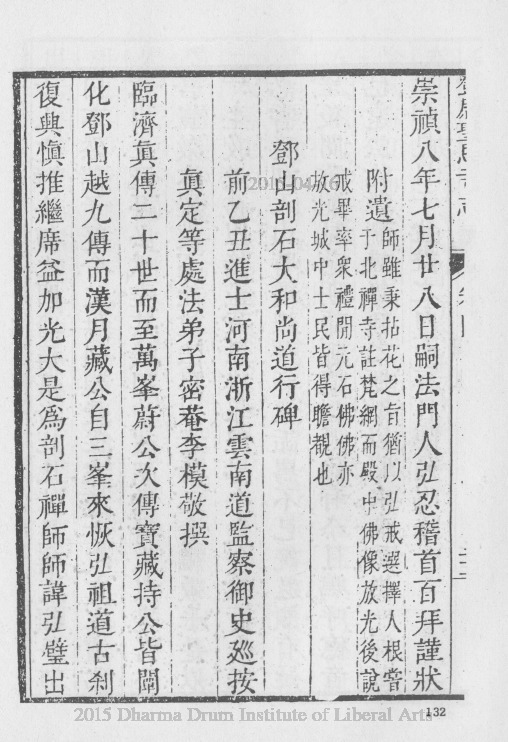 崇禎八年七月廿八日嗣法門人弘忍稽首百拜謹狀
附遺師雖秉拈花之旨猶以弘戒選擇人根嘗
于北禪寺註梵網而殿中佛像放光後說
戒畢率衆禮開元石佛佛亦
放光城中士民皆得瞻覩也
鄧山剖石大和尚道行碑
前乙丑進士河南浙江雲南道監察御史廵按
真定等處法弟子密菴李模敬撰
臨濟眞傳二十世而至萬峯蔚公次傳寶藏持公皆闡
化鄧山越九傳而漢月藏公自三峯來恢弘祖道古刹
復興愼推繼席益加光大是爲剖石禪師師諱弘璧出
132
2015 Dharma Drum Institute of Liberal Arts